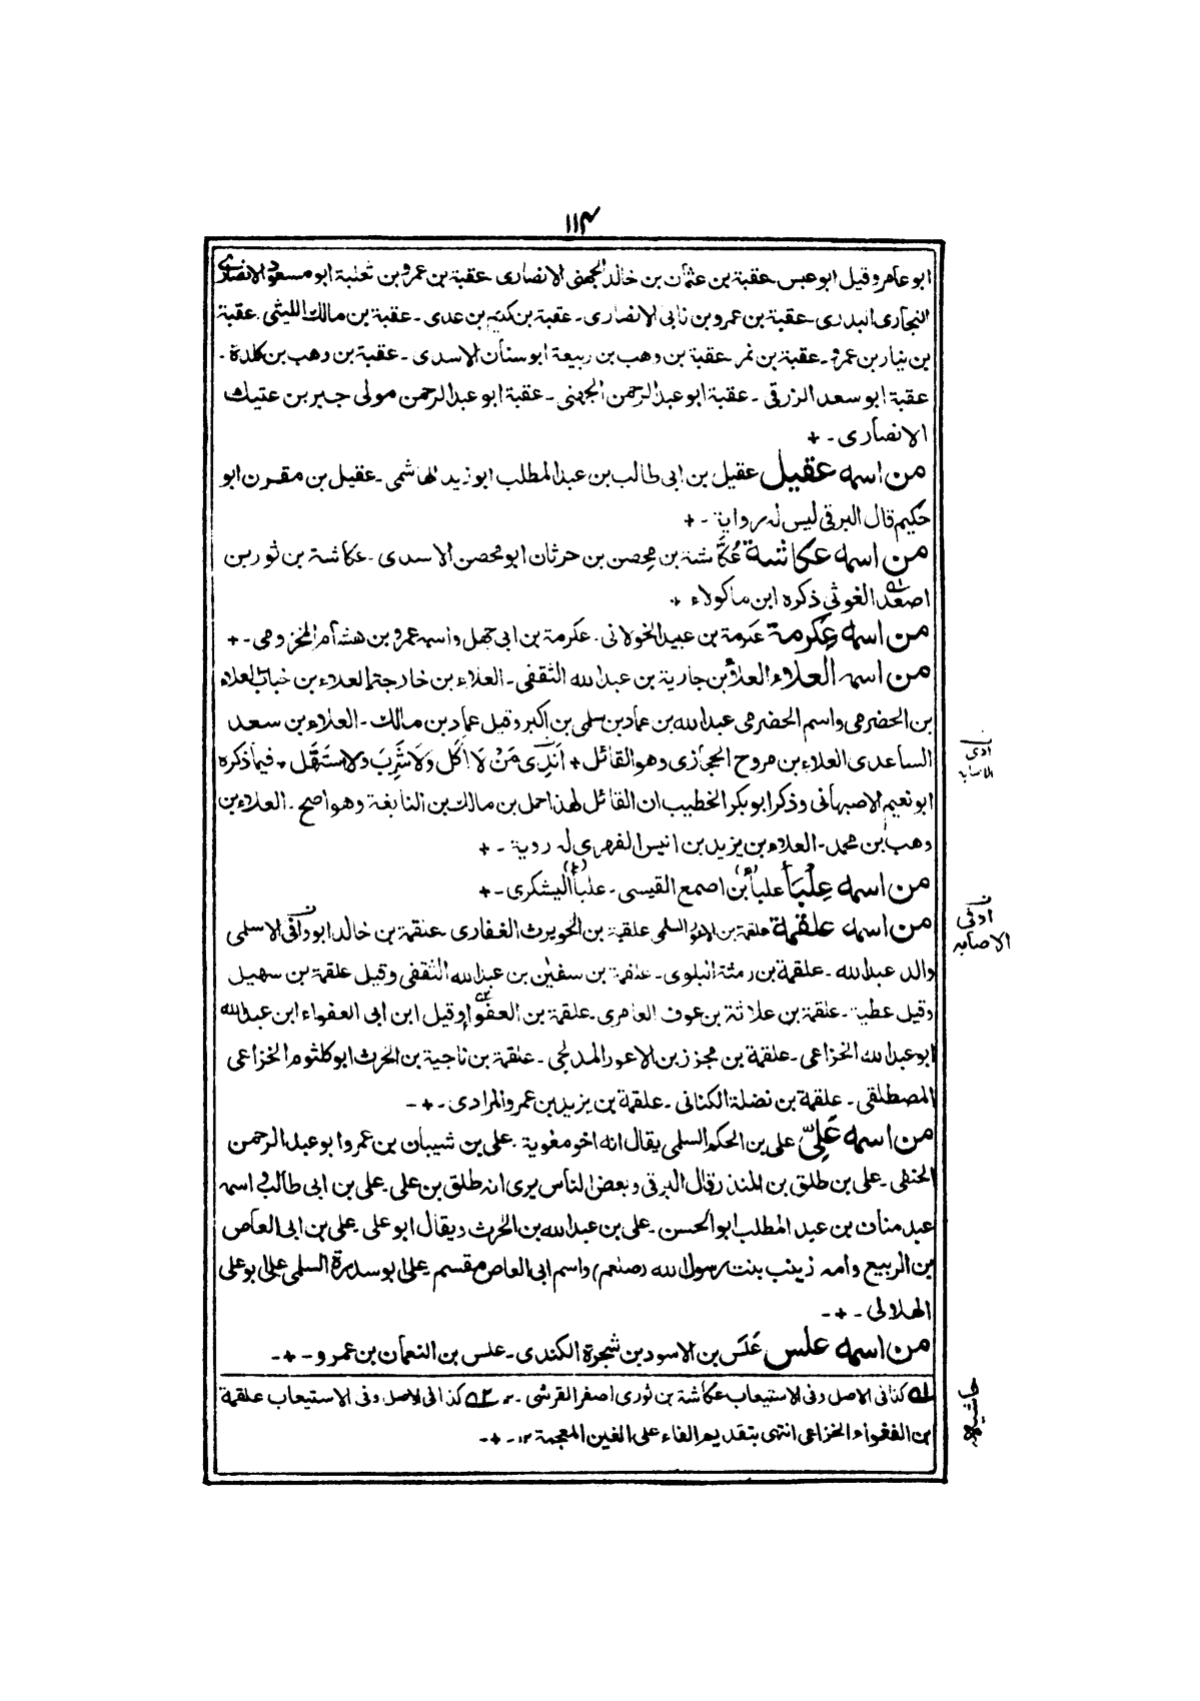 ١١٤
ابو عامر وقيل ابو عبس عقبة بن عثمان بن خالد الجهنى الانصارى عقبة بن عمرو بن ثعلبة ابو مسعود الانصارى
النجارى البدرى ـ عقبة بن عمرو بن نابى الانصارى ـ عقبة بن كديم بن عدى ـ عقبة بن مالك الليثى ـ عقبة
بن نيار بن عمرو ـ عقبة بن نمر ـ عقبة بن وهب بن ربيعة ابو سنان الاسدى ـ عقبة بن وهب بن كلدة ـ
عقبة ابو سعد الزرقى ـ عقبة ابو عبد الرحمن الجهنى ـ عقبة ابو عبد الرحمن مولى جبر بن عتيك
الانصارى ـ +
من اسمه عقيل عقيل بن ابى طالب بن عبد المطلب ابو زيد الهاشمى ـ عقيل بن مقرن ابو
حكيم قال البرقى ليس له رواية ـ +
من اسمه عكاشة عُكَّاشة بن مِحصن بن حرثان ابو محصن الاسدى ـ عكاشة بن ثور بن
اصعد الغوثى ذكره ابن ماكولاء +
من اسمه عِكرمة عكرمة بن عبيد الخولانى ـ عكرمة بن ابى جهل واسمه عمرو بن هشام المخزومى ـ +
من اسمه العلاء العلاء بن جارية بن عبد الله الثقفى ـ العلاء بن خارجة العلاء بن خباب العلاء
بن الحضرمى واسم الحضرمى عبد الله بن عماد بن سلمى بن اكبر وقيل عماد بن مالك ـ العلاء بن سعد
الساعدى العلاء بن مروح الحجازى وهو القائل + اَنَدِىْ مَنْ لَا اَكَل وَلَا شَرِبَ ولا استَهَل + فيما ذكره
ابو نعيم الاصبهانى وذكر ابو بكر الخطيب ان القائل لهذا حمل بن مالك بن النابغة وهو اصح ـ العلاء بن
وهب بن محمد ـ العلاء بن يزيد بن انيس الفهرى له روية ـ +
من اسمه عِلْبَأ علبأ بن اصمع القيسى ـ علبأ اليشكرى ـ +
من اسمه علقمة علقمة بن الاعور السلمى علقمة بن الحويرث الغفارى ـ علقمة بن خالد ابو وافى الاسلمى
والد عبد الله ـ علقمة بن رمثة البلوى ـ علقمة بن سفين بن عبد الله الثقفى وقيل علقمة بن سهيل
وقيل عطية ـ علقمة بن علاثة بن عوف العامرى ـ علقمة بن العفواء وقيل ابن ابى العفواء ابن عبد الله
ابو عبد الله الخزاعى ـ علقمة بن مجزز بن الاعور المدلجى ـ علقمة بن ناجية بن الحرث ابو كلثوم الخزاعى
المصطلقى ـ علقمة بن نضلة الكنانى ـ علقمة بن يزيد بن عمرو المرادى ـ + ـ
من اسمه عَلِىّ على بن الحكم السلمى يقال انه اخو معوية ـ على بن شيبان بن عمرو ابو عبد الرحمن
الحنفى ـ على بن طلق بن المنذر قال البرقى وبعض الناس يرى انه طلق بن على ـ على بن ابى طالب اسمه
عبد مناف بن عبد المطلب ابو الحسن ـ على بن عبد الله بن الحرث ويقال ابو على ـ على بن ابى العاص
بن الربيع وامه زينب بنت رسول الله (صلعم) واسم ابى العاص مقسم ـ على ابو سدرة السلمى على ابو على
الهلالى ـ + ـ
من اسمه علس عَلَس بن الاسود بن شجرة الكندى ـ علس بن النعمان بن عمرو ـ + ـ
١ـه كذا فى الاصل وفى الاستيعاب عكاشة بن ثورى اصفر القرشى ـ ٢ـه كذا فى الاصل وفى الاستيعاب علقمة
بن الفغواء الخزاعى انتهى بتقديم الفاء على الغين المعجمة ١٢ ـ + ـ
الاصابه
حاشيه